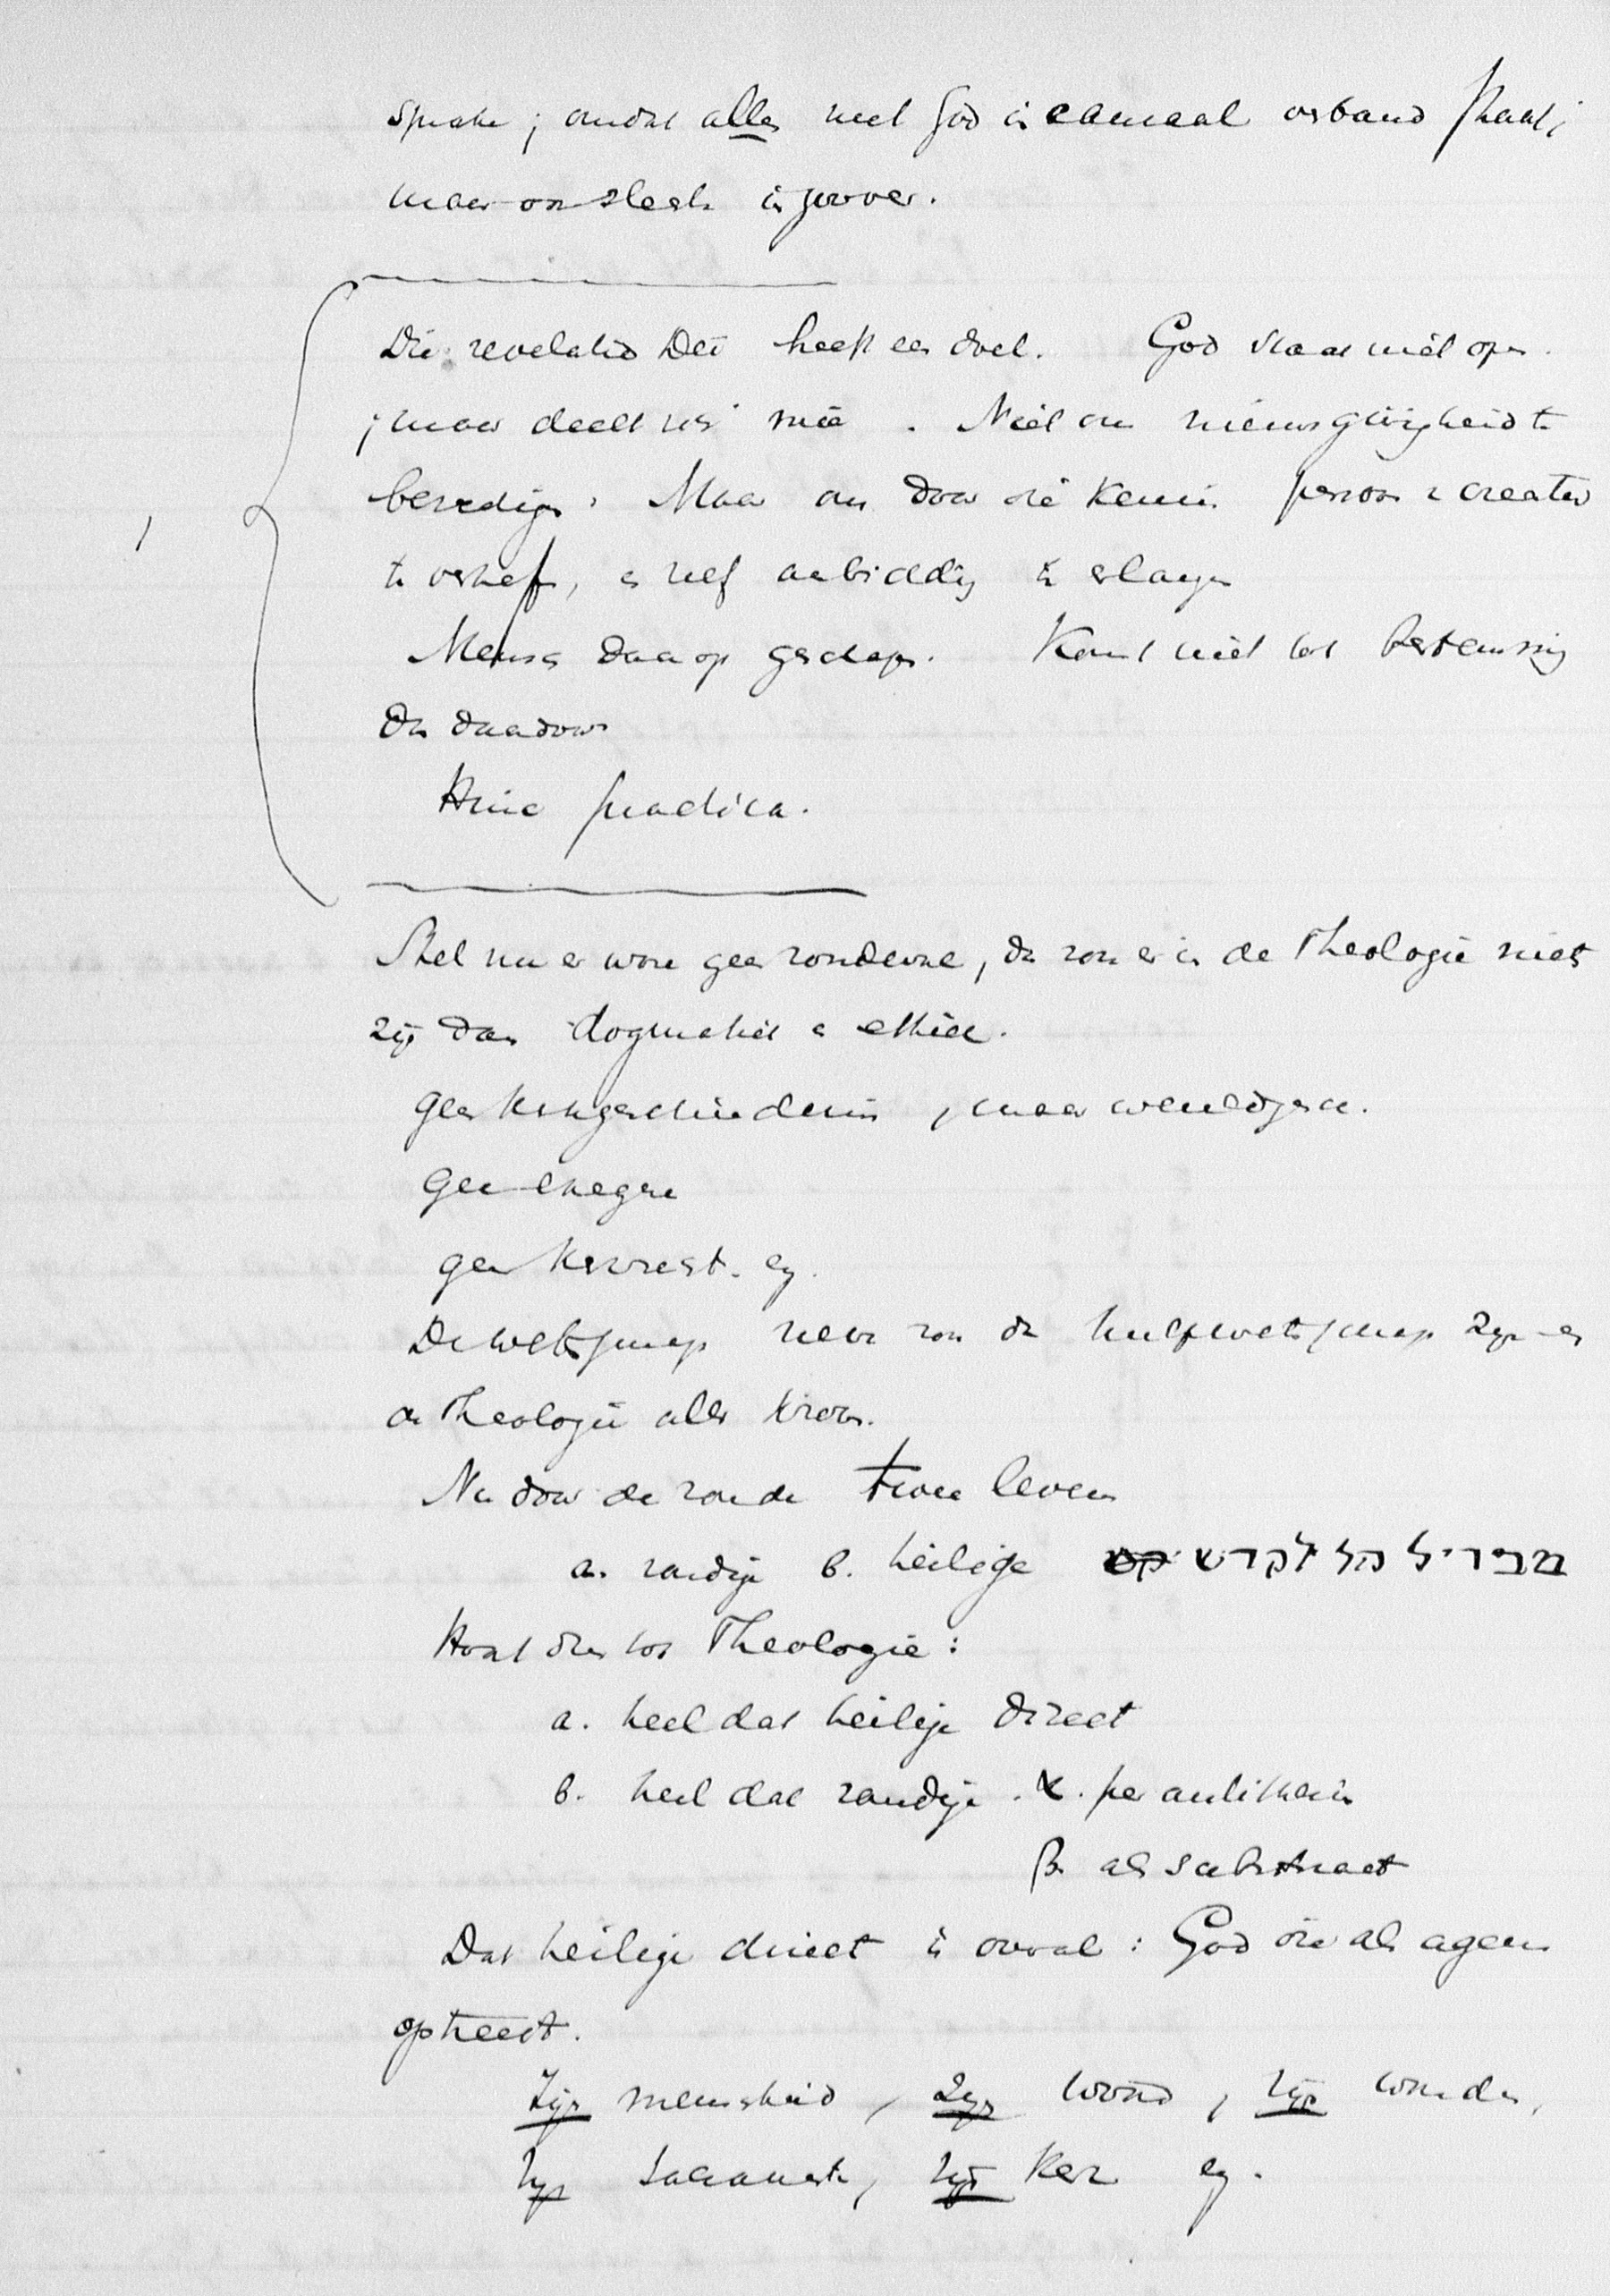 sprake; omdat alles met God in causaal verband staat;
maar ons slechts in zoover.
Die revelatio Dei heeft een doel. God slaat niet open
; maar deelt zich meê. Niet om nieuwsgierigheid te
bevredigen. Maar om door die kennis persoon & creatuur
te verheffen, en zelf aanbidding te erlangen
Mensch daarop geschapen. Komt niet tot bestemming
dan daardoor
Hinc practica.
Stel nu er ware geen zonde eval, dan zou er in de Theologie niets
zijn dan dogmatiek en ethiek.
geen kerkgeschiedenis, maar wereldgesch.
geen exegese
geen kerkrest. eg.
De wetenschap zelve zou dan hulpwetenschap zijn en
de Theologie aller kroon.
Nu door de zonde twee levens
a. zondige b. heilige מבדיל קל לקדש
Hoort dus tot Theologie:
a. heel dat heilige direct
b. heel dat zondige. α. per antithesin
β. als substraat
Dat heilige direct is overal: God die als agens
optreedt.
Zijn menschheid, Zijn woord, Zijn wonder,
Zijn Sacrament, Zijn Kerk eg.